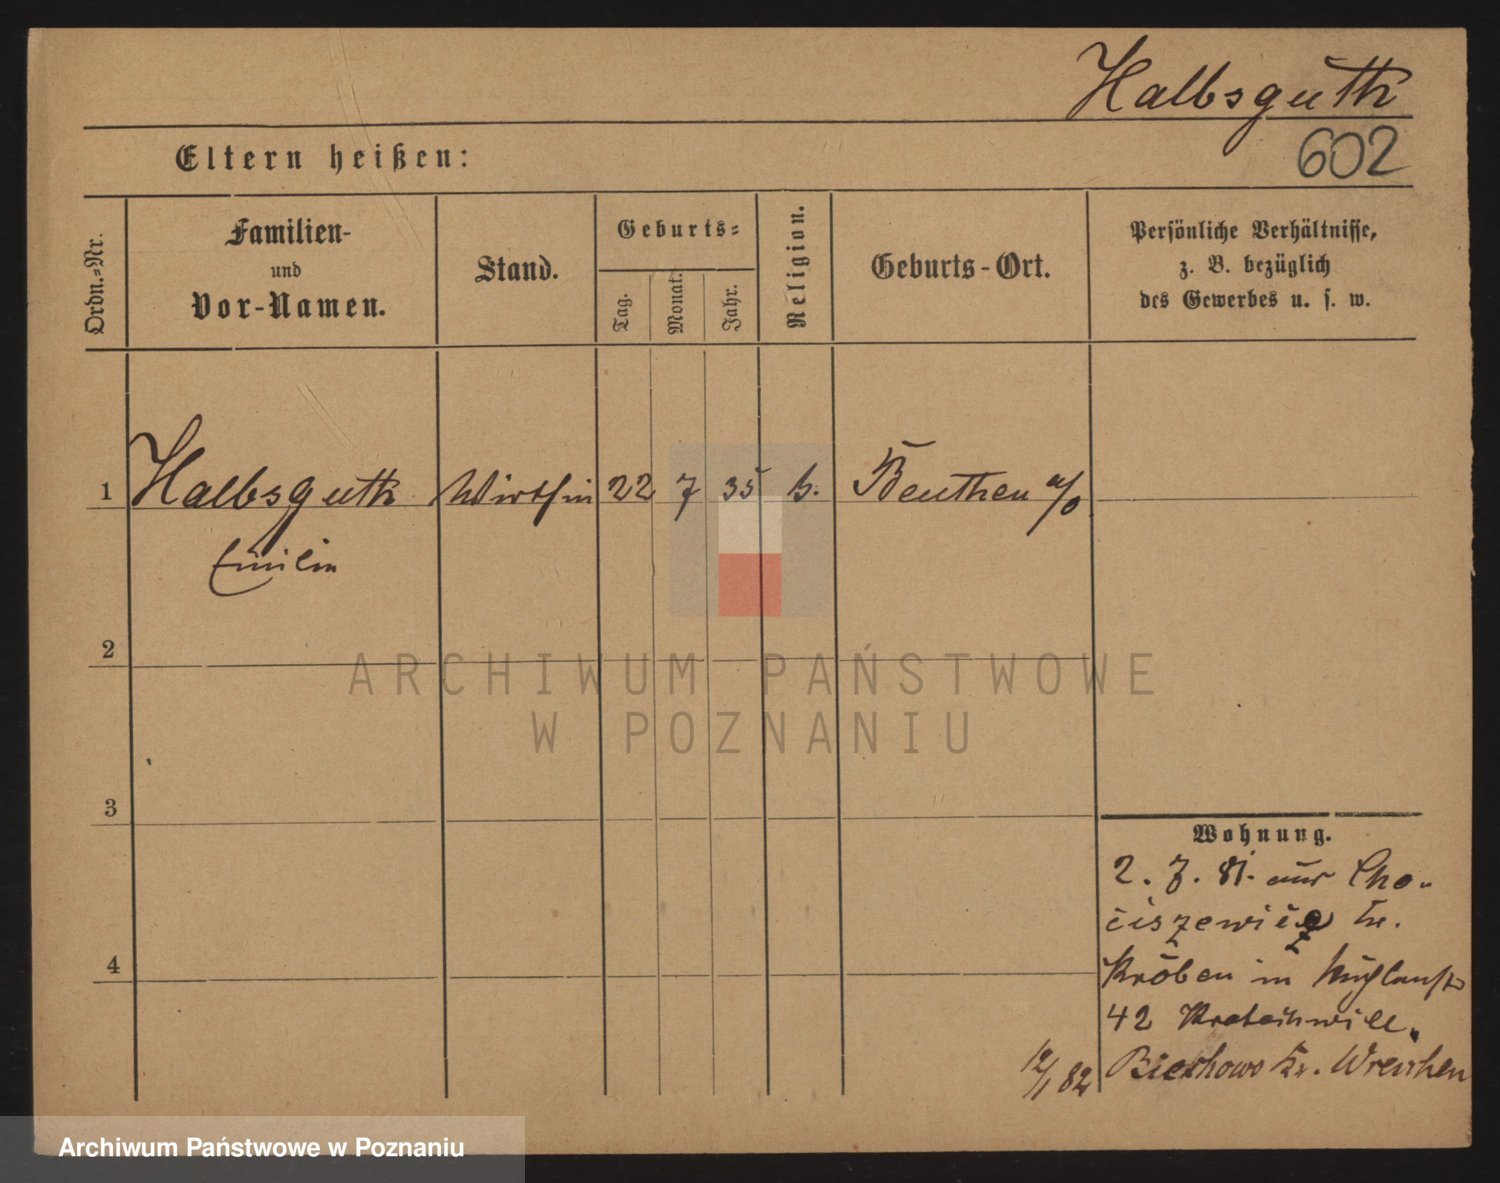 Halbsguth
602
Eltern heißen:
Ordn.=Nr.
Familien-
und
Vor-Namen.
Stand.
Geburts=
Tag.
Monat.
Jahr.
Religion.
Geburts-Ort.
Persönliche Verhältnisse,
z. B. bezüglich
des Gewerbes u. s. w.
1 Halbsguth Wirthin 22 7 35 Beuthen a/O
Emilie
2
ARCHIWUM PAŃSTWOWE
W POZNANIU
3
Wohnung.
2. 7. 81. aus Cho-
ciszewicz Kr.
4
Kröben in
42
12/1 82 Kr. Wreschen
Archiwum Państwowe w Poznaniu